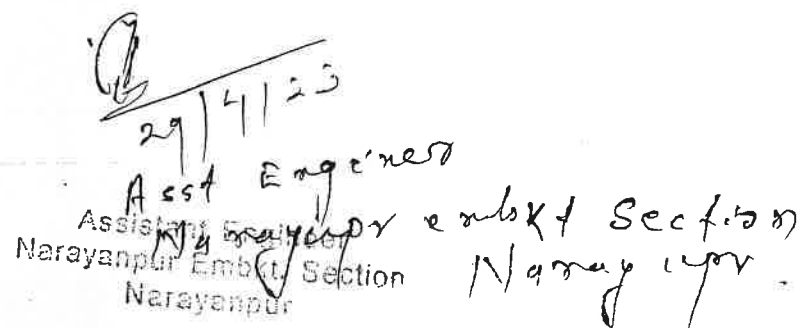 29/4/23
Asst Engineer
Narayupr embkt Section
Narayupr.
Assistant Engineer
Narayanpur Embkt. Section
Narayanpur